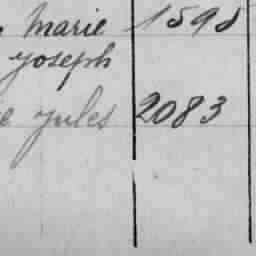 Marie 1598
Joseph
Jules 2083